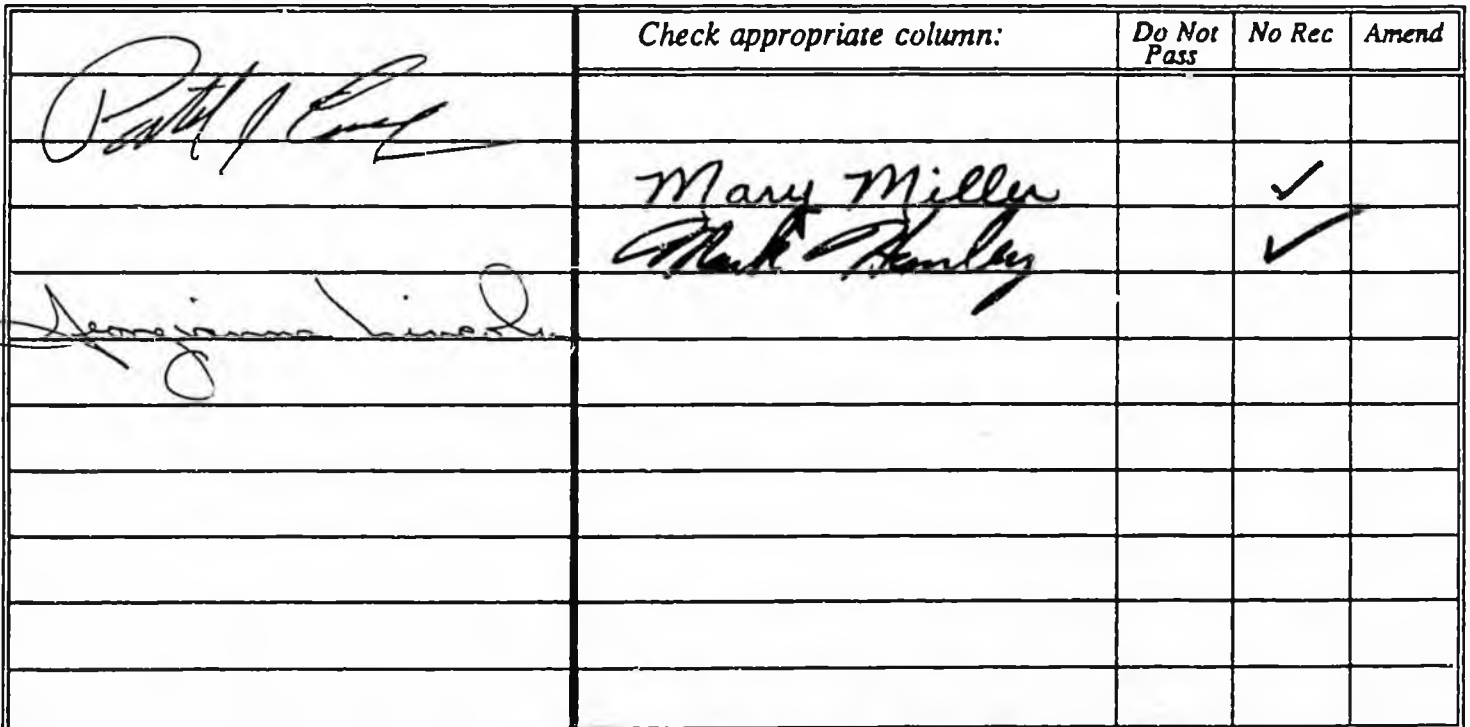 Check appropriate column:
Do Not Pass
No Rec
Amend
Mary Miller ✓
Mark Hanley ✓
Georgianna Lincoln